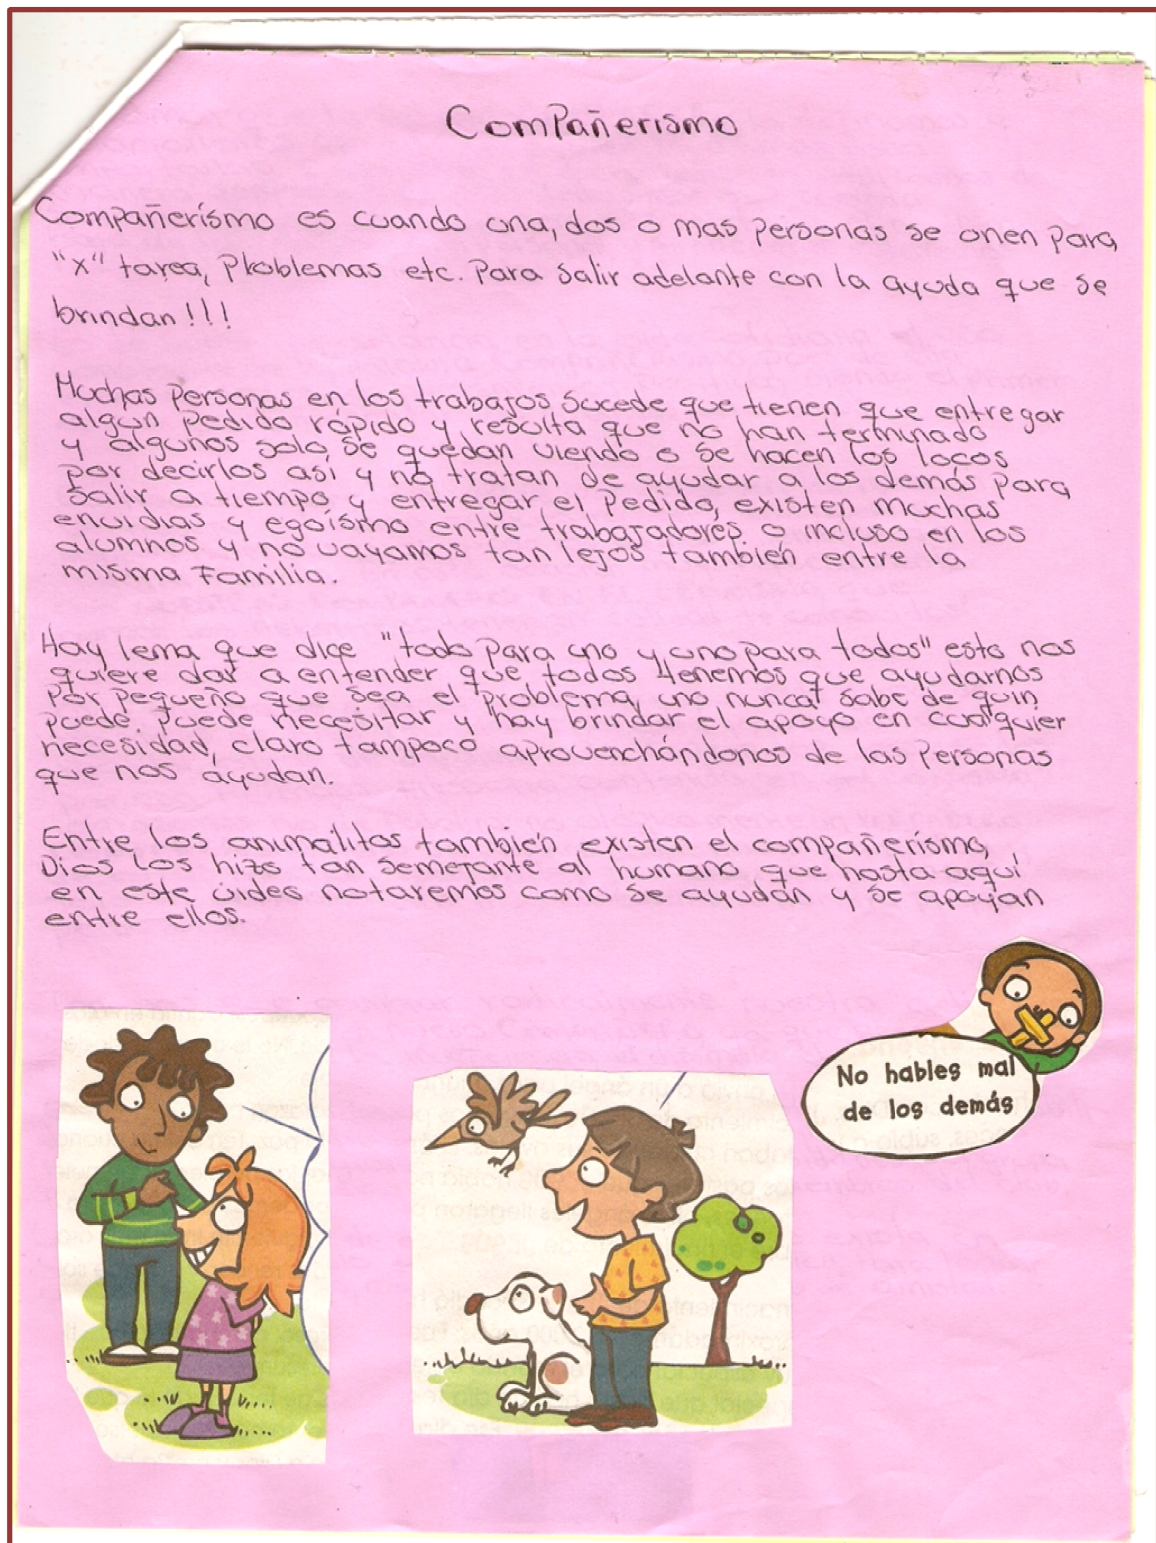 Compañerismo
Compañerísmo es cuando una, dos o mas personas se unen para,
"x" tarea, Ploblemas etc. Para salir adelante con la ayuda que se
brindan!!!
Muchas personas en los trabajos sucede que tienen que entregar
algún pedido rápido y resulta que no han terminado
y algunos solo se quedan viendo o se hacen los locos
por decirlos así y no tratan de ayudar a los demás para
salir a tiempo y entregar el pedido, existen muchas
envidias y egoísmo entre trabajadores o incluso en los
alumnos y no vayamos tan lejos también entre la
misma Familia.
Hay lema que dice "todo para uno y uno para todos" esto nos
quiere dar a entender que todos tenemos que ayudarnos
Por pequeño que sea el problema, uno nunca sabe de quin
puede. puede necesitar y hay brindar el apoyo en cualquier
necesidad, claro tampoco aprovenchándonos de las personas
que nos ayudan.
Entre los animalitos también existen el compañerísmo,
Dios los hizo tan semejante al humano que hasta aquí
en este video notaremos como se ayudan y se apoyan
entre ellos.
No hables mal
de los demás